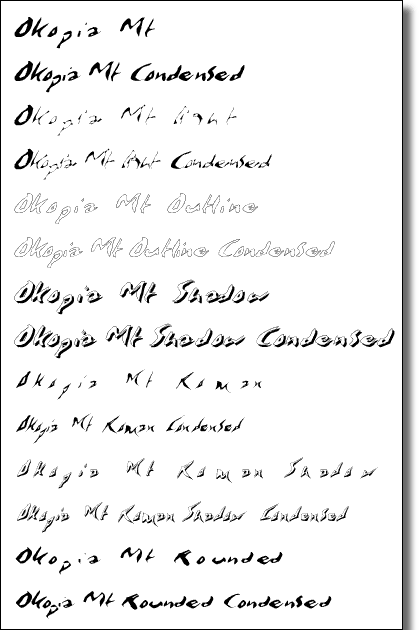 Okopia Mt
Okopia Mt Condensed
Okopia Mt light
Okopia Mt light Condensed
Okopia Mt Outline
Okopia Mt Outline Condensed
Okopia Mt Shadow
Okopia Mt Shadow Condensed
Okopia Mt Roman
Okopia Mt Roman Condensed
Okopia Mt Roman Shadow
Okopia Mt Roman Shadow Condensed
Okopia Mt Rounded
Okopia Mt Rounded Condensed